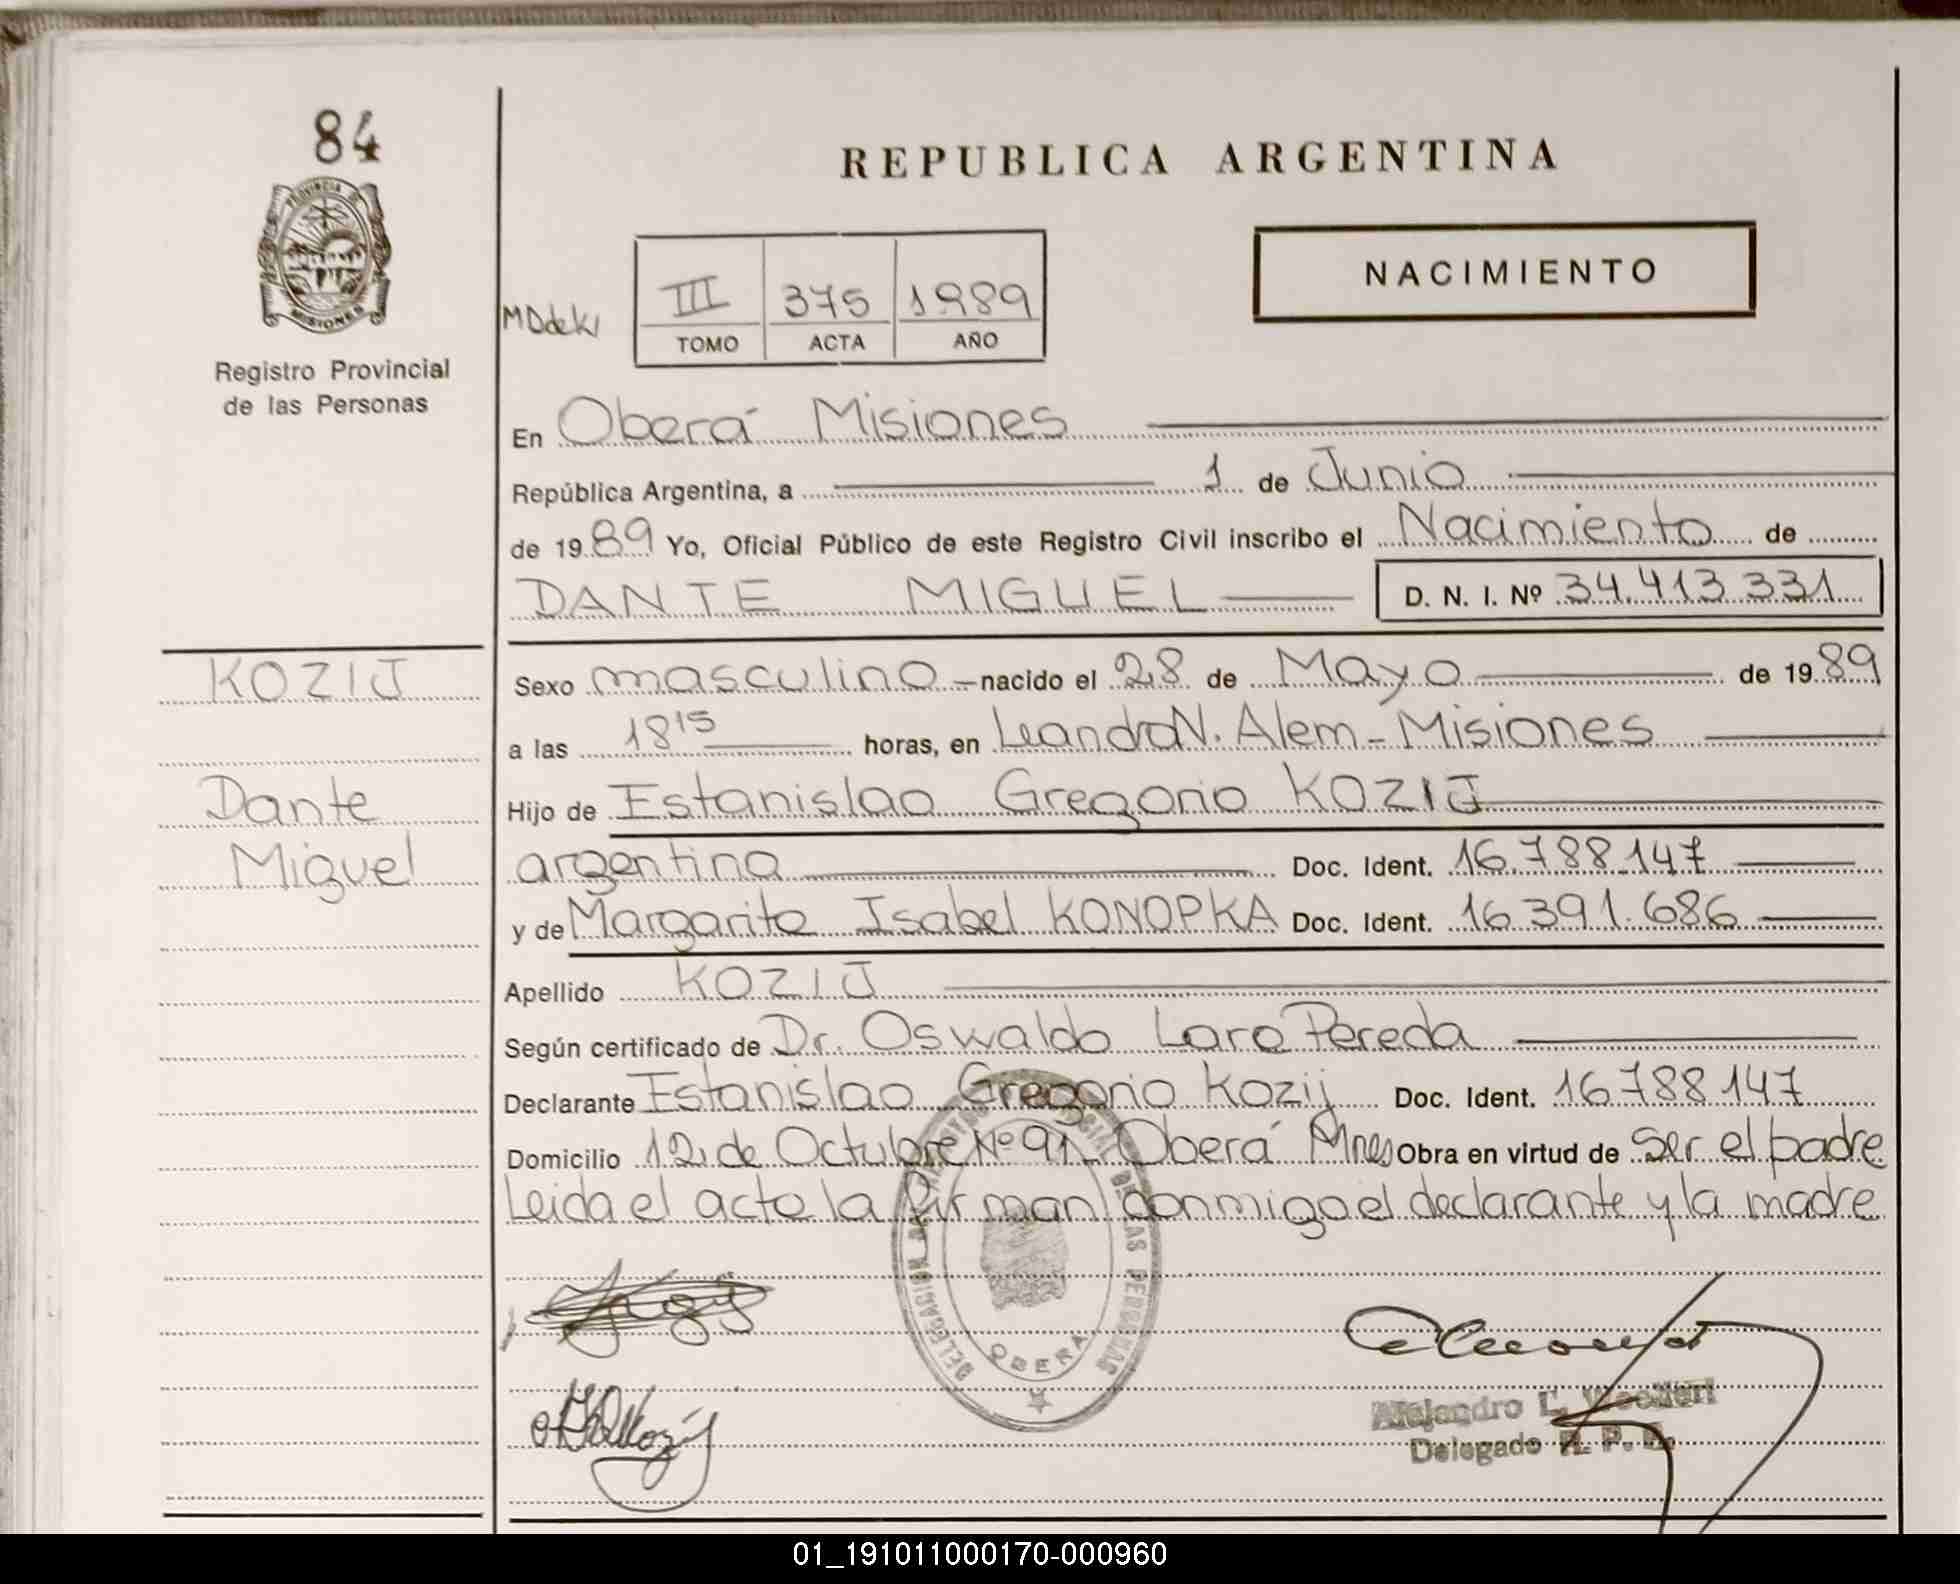 84
PROVINCIA DE
MISIONES
Registro Provincial
de las Personas
REPUBLICA ARGENTINA
NACIMIENTO
III 375 1989
TOMO ACTA AÑO
En Oberá Misiones
República Argentina, a 1 de Junio
de 1989 Yo, Oficial Público de este Registro Civil inscribo el Nacimiento de
DANTE MIGUEL D. N. I. Nº 34.413.331
KOZIJ
Dante
Miguel
Sexo masculino nacido el 28 de Mayo de 1989
a las 18 15 horas, en Leandro N. Alem - Misiones
Hijo de Estanislao Gregorio KOZIJ
argentina Doc. Ident. 16.788.147
y de Margarita Isabel KONOPKA Doc. Ident. 16.391.686
Apellido KOZIJ
Según certificado de Dr. Oswaldo Lara Pereda
Declarante Estanislao Gregorio Kozij Doc. Ident. 16.788.147
Domicilio 12 de Octubre Nº 91 Oberá Mnes Obra en virtud de ser el padre
Leida el acta la firman conmigo el declarante y la madre
DELEGACION DE LAS PERSONAS
OBERA
Alejandro E.
Delegado R. P. P.
01_191011000170-000960